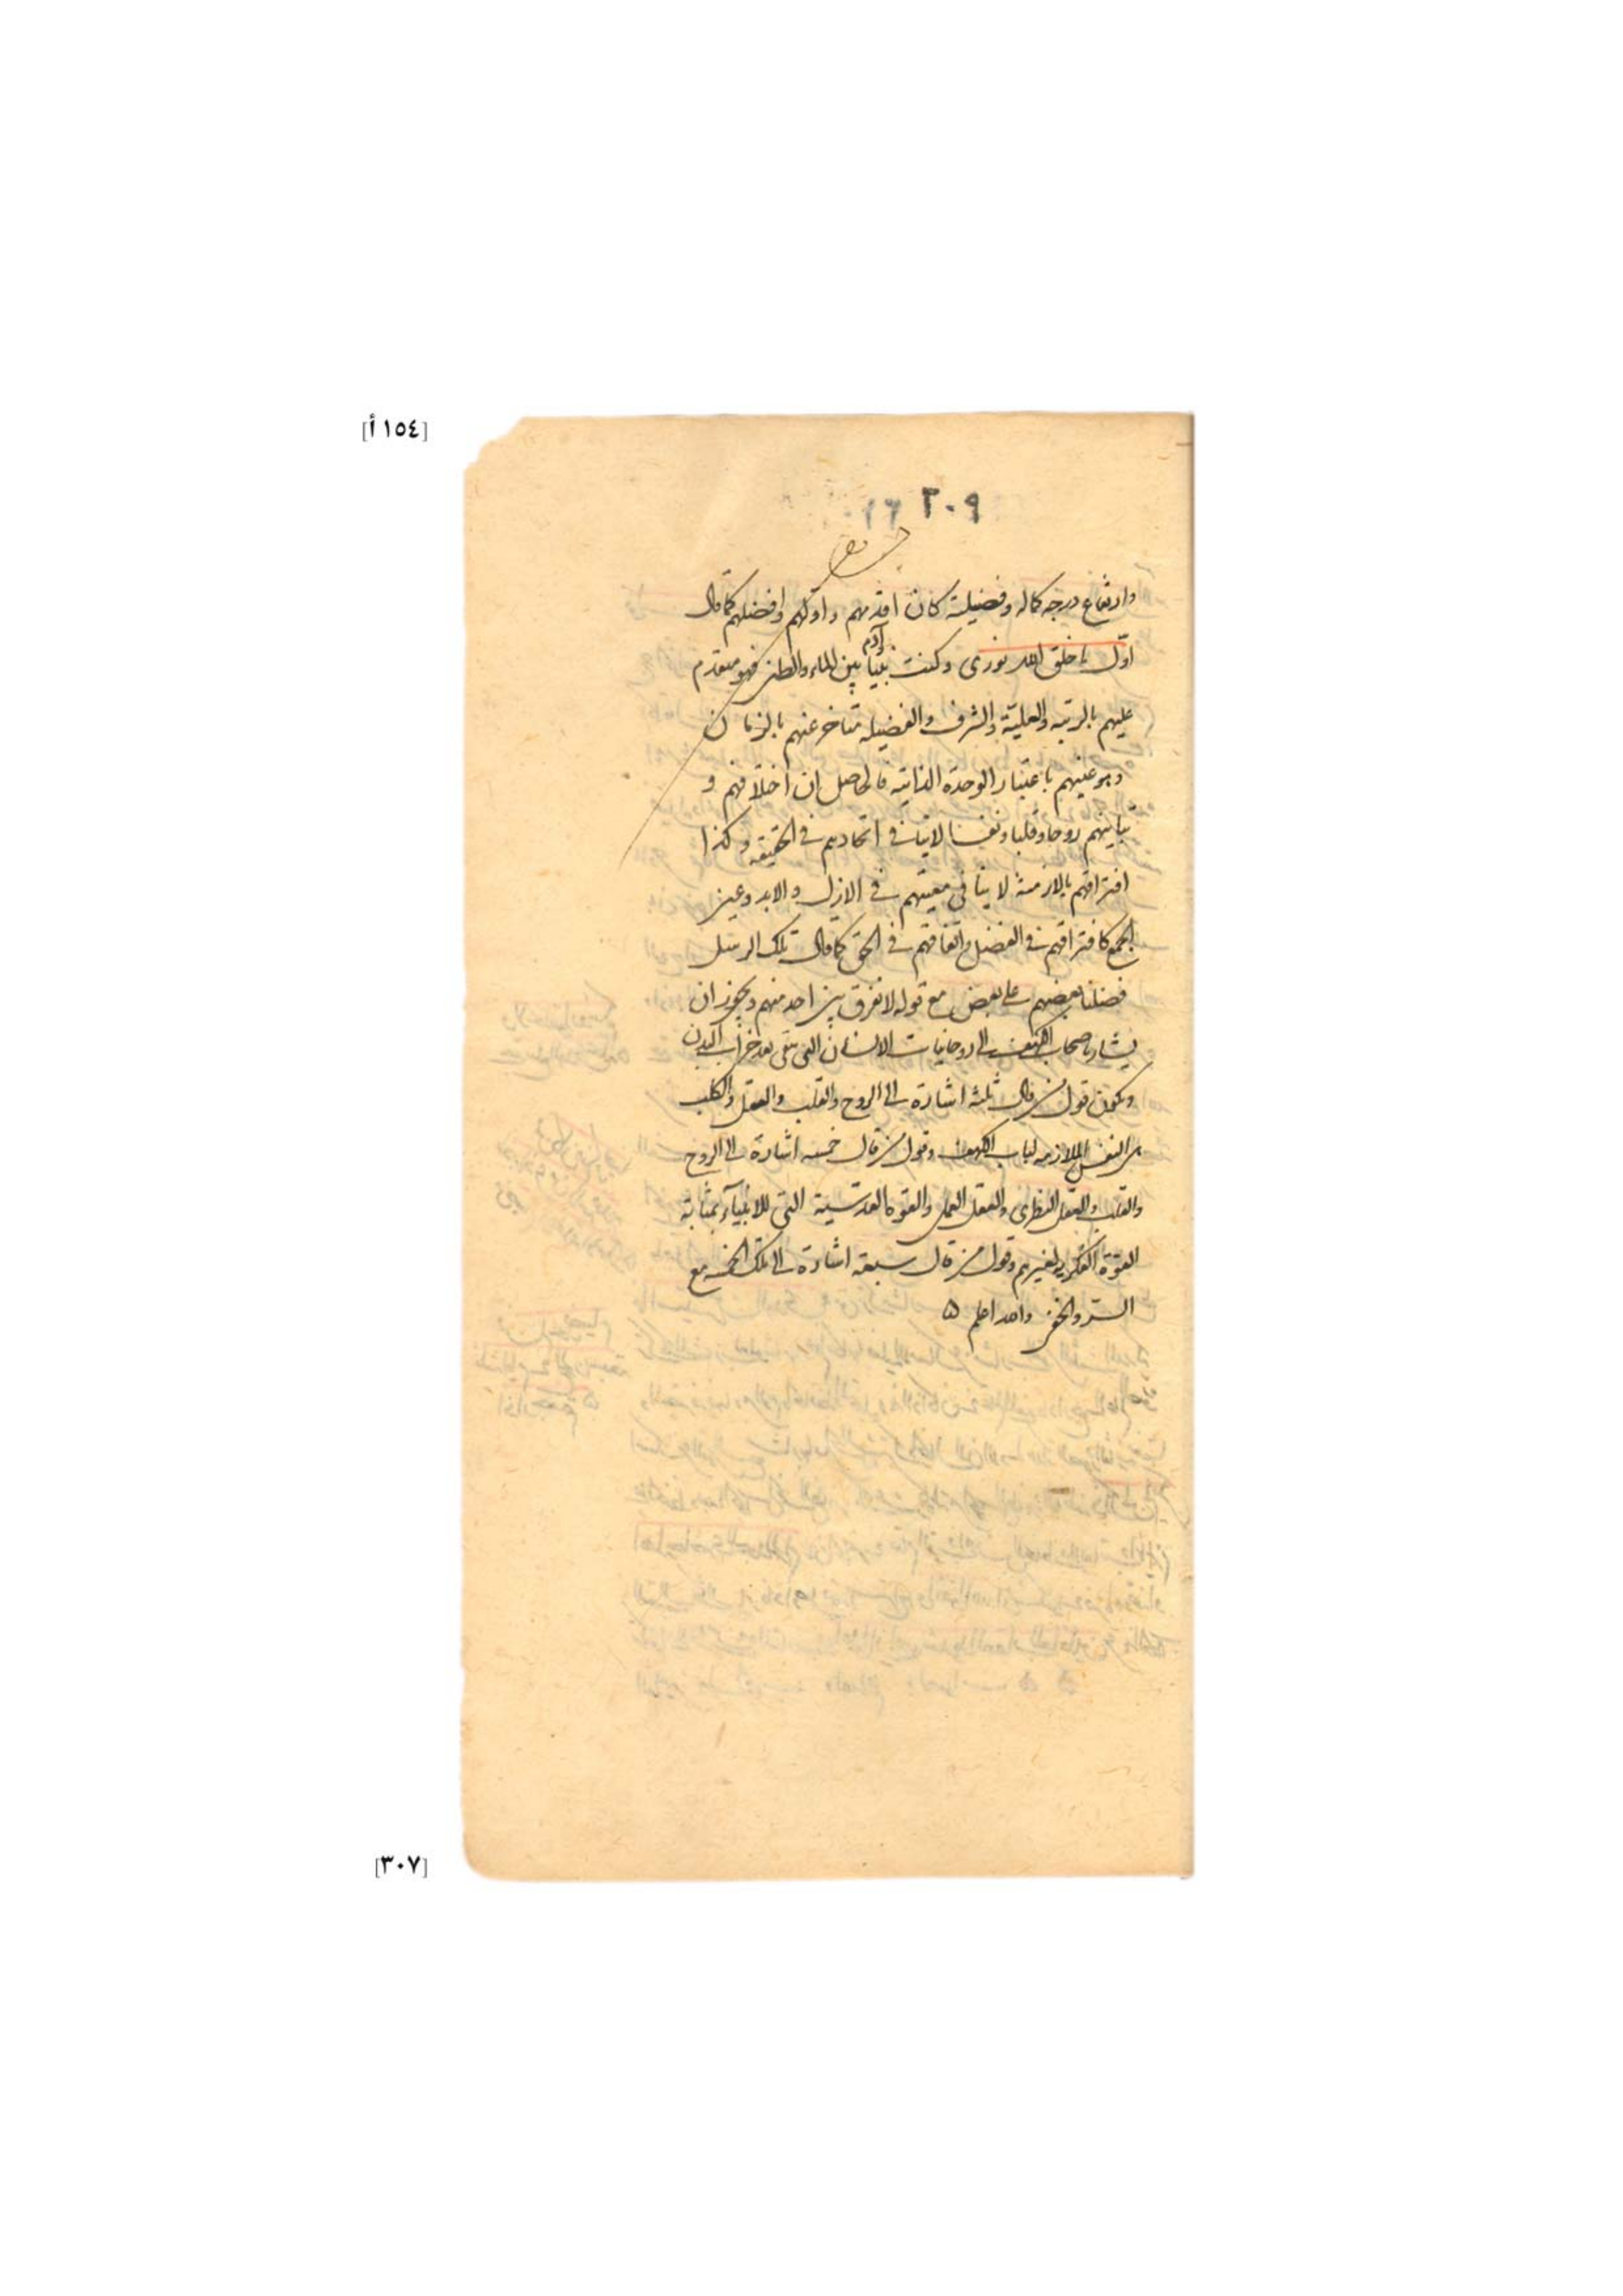 [١٥٤ أ]
٣٠٩ ١٦
وارتفاع درجة كماله وفضيلة كان اقدمهم واولهم وافضلهم كما قال
اوّل ما خلق الله نورى وكنت نبيا وآدم بين الماء والطين فهو متقدم
عليهم بالرتبه والعليّة والشرف والفضيله متاخر عنهم بالزمان
وهو عينهم باعتبار الوحدة الذاتيه فالحاصل ان اختلافهم و
تباينهم روحا وقلبا ونفسا لا ينافى اتحادهم فى الحقيقه وكذا
افتراقهم بالازمنة لا ينافى معيتهم فى الازل والابد وعين
الجمع كافتراقهم فى الفضل واتفاقهم فى الحق كما قال تلك الرسل
فضلنا بعضهم على بعض مع قوله لا نفرق بين احد منهم ويجوز ان
يشار باصحاب الكهف الى روحانيات الانسان التى تبقى بعد خراب البدن
ويكون قول من قال ثلثه اشارة الى الروح والقلب والعقل والكلب
هى النفس الملازمه لباب الكهف وقول من قال خمسه اشارة الى الروح
والقلب والعقل النظرى والعقل العملى والقوة القدسية التى للانبيآء بمثابة
القوة الفكرية لغيرهم وقول من قال سبعة اشارة الى تلك الخمسه مع
السرّ والخفى والله اعلم ه
[٣٠٧]